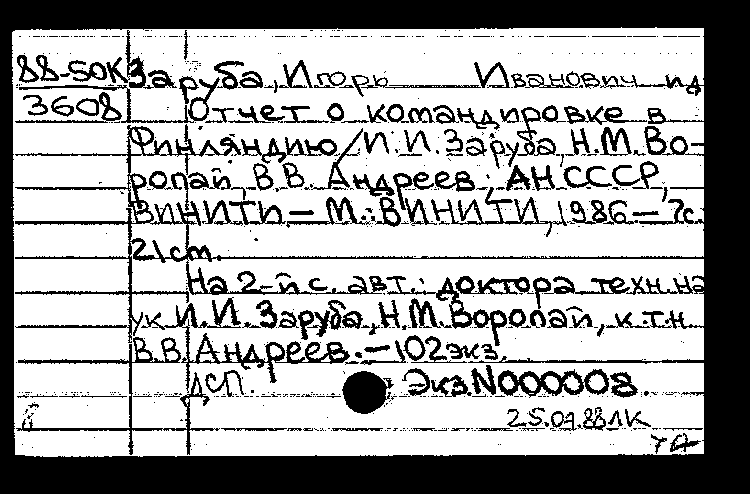 88-50К Заруба, Игорь Иванович и др
3608 Отчет о командировке в
Финляндию / И. И. Заруба, Н. М. Во-
ропай, В. В. Андреев; АН СССР,
ВИНИТИ — М.: ВИНИТИ, 1986 — 7с.
21 cm.
На 2-й с. авт.: доктора техн. на
ук И. И. Заруба, Н. М. Воропай, к.т.н.
В. В. Андреев. — 102экз.
ДСП. Экз. N000008.
8
25.04.88ЛК